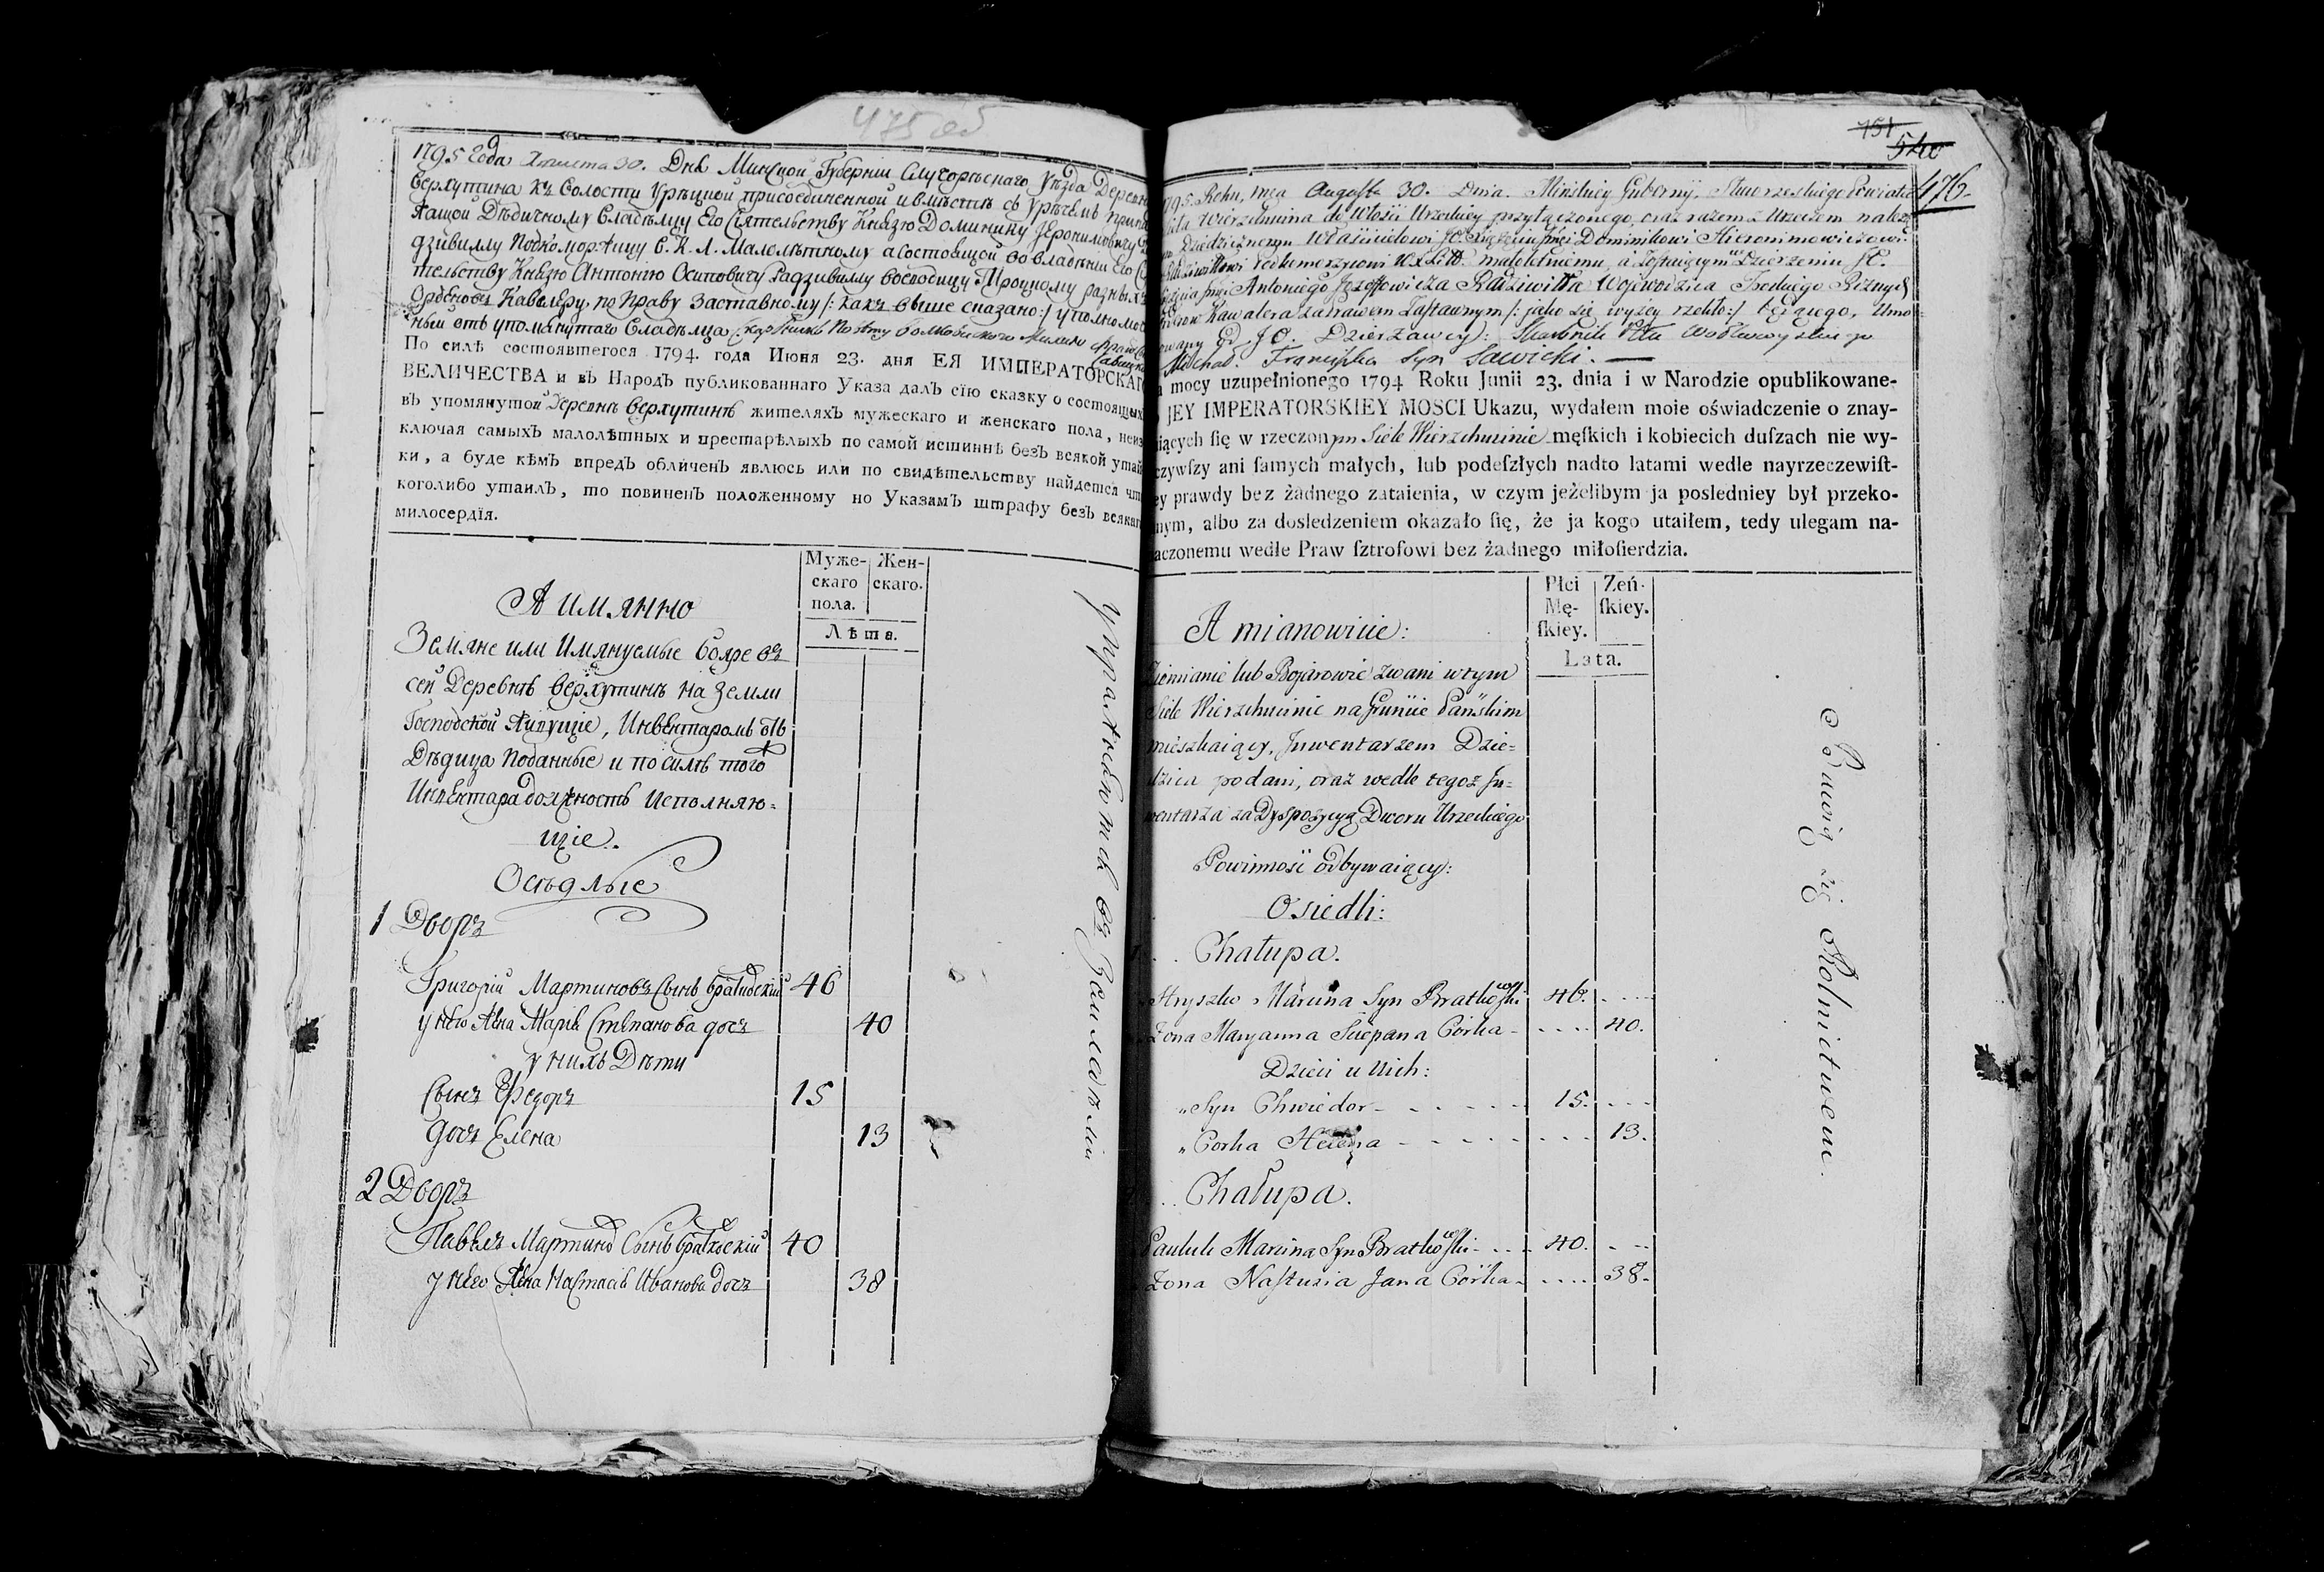 475 об
1795 Года Августа 30. Дня Минской Губернии Слуцорѣскаго Уѣзда Деревни
Верхутина къ Волости Урѣцкой присоединенной и вмѣстѣ съ Урѣчемъ
Дѣдичному Владѣлцу Его Сіятельству Князю Доминику Іеронимовичу
дзивиллу Подкоморжицу В. К. Л. Малолѣтному а состоящой во владѣніи Его
тельству Князю Антонію Осиповичу Радзивиллу воеводицу Троцкому разныхъ
Орденовъ Кавалеру, по праву Заставному /: какъ выше сказано:/
ный отъ упомянутаго Владѣлца
По силѣ состоявшегося 1794. года Июня 23. дня ЕЯ ИМПЕРАТОРСКАГ
ВЕЛИЧЕСТВА и въ Народъ публикованнаго Указа далъ сїю сказку о состоящих
въ упомянутой Деревнѣ Верхутинѣ жителяхъ мужескаго и женскаго пола, неиз
ключая самыхъ малолѣтных и престарѣлыхъ по самой истиннѣ безъ всякой утай
ки, а буде кѣмъ впредъ обличенъ явлюсь или по свидѣтельству найдется чт
коголибо утаилъ, то повиненъ положенному но Указамъ штрафу безъ всякаг
милосердїя.
Муже- Жен-
скаго скаго.
пола.
Лѣта.
А имянно
Земяне или Имянуемые бояре въ
сей Деревнѣ Верхутинѣ на земли
Господской Живущіе, Инвентаромъ отъ
Дѣдица Поданные и по силѣ того
Инвентара должность Исполняю=
щіе.
Осѣдлые
1 Дворъ
Григорій Мартиновъ Сынъ 46
у него Жена Марія Степанова дочь 40
у нихъ Дѣти
Сынъ Федоръ 15
дочь Елена 13
2 Дворъ
Павелъ Мартинов Сынъ 40
у него Жена Настасія Иванова дочь 38
151
540
476
795. Roku, mca Augusta 30. Dnia. Minskiey Guberny, Powiatu
Wierzchucina do Włości Urzeckiey przyłączonego, oraz razem z Urzeczem
Dziedzicznemu Właścicielowi JO. Dominikowi Hieronimowiczowi
Podkomorzycowi W. X. Litt. małoletniemu, a zostaiącym w Dzierzeniu JO.
Antoniego Jozeffowicza Radziwiłła Woiewodzica Trockiego Roznych
Kawalera za Prawem Zastawnym /: jako się wyżey rzekło:/
od JO. Dzierżawcy: Skarbnik Pttu Wołkowyskiego
Michał Franciszka Syn Sawicki.
mocy uzupełnionego 1794 Roku Junii 23. dnia i w Narodzie opublikowane-
JEY IMPERATORSKIEY MOSCI Ukazu, wydałem moie oświadczenie o znay-
iących ſię w rzeczonym Siele Wierzchucinie męſkich i kobiecich duſzach nie wy-
czywſzy ani ſamych małych, lub podeſzłych nadto latami wedle nayrzeczewiſt-
ey prawdy bez żadnego zataienia, w czym jeżelibym ja posledniey był przeko-
nym, albo za dosledzeniem okazało ſię, że ja kogo utaiłem, tedy ulegam na-
aczonemu wedłe Praw ſztrofowi bez żadnego miłoſierdzia.
Płci Zeń-
Mę- ſkiey.
ſkiey.
Lata.
A mianowicie:
Ziemianie lub Bojarowie zwani w tym
Siele Wierzchucinie na Gruncie Pańskim
mieszkaiący, Jnwentarzem Dzie=
dzica podani, oraz wedle tegoż Jn=
wentarza za Dyspozycyą Dworu Urzeckiego
Powinność odbywaiący:
Osiedli:
Chałupa.
Hryszko Marcina Syn Bratkowski 46.
Zona Maryanna Sciepana Corka 40.
Dzieci u Nich:
„ Syn Chwiedor 15.
„ Corka Helena 13.
Chałupa.
Pauluk Marcina Syn Bratkowski 40.
Zona Nastuzia Jana Corka 38.
Bawią się Rolnictwem.